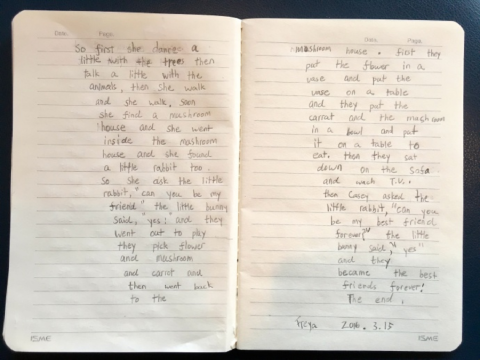 Date    Page
So first she dance a
little with the trees then
talk a little with the
animals, then she walk
and she walk. Soon
she find a mashroom
house and she went
inside the mashroom
house and she found
a little rabbit too.
So she ask the little
rabbit, "can you be my
friend" the little bunny
said, yes! and they
went out to play
they pick flower
and mashroom
and carrot and
then went back
to the
Date    Page
mashroom house. first they
put the flower in a
vase and put the
vase on a table
and they put the
carrat and the mashroom
in a bowl and put
it on a table to
eat. then they sat
down on the sofa
and wach T.V.
then Casey asked the
little rabbit, "can you
be my best friend
forever" the little
bunny said, "yes"
and they
became the best
friends forever!
The end.
2016.3.15